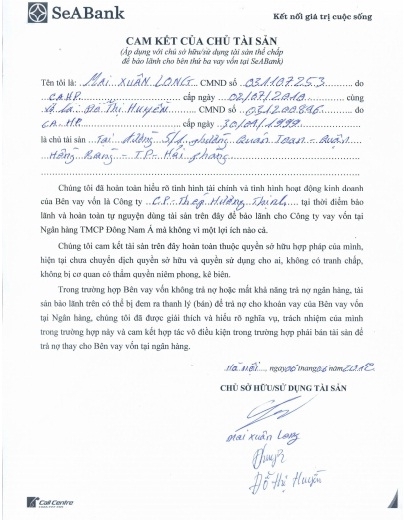 SeABank
Kết nối giá trị cuộc sống
CAM KẾT CỦA CHỦ TÀI SẢN
(Áp dụng với chủ sở hữu/sử dụng tài sản thế chấp
để bảo lãnh cho bên thứ ba vay vốn tại SeABank)
Tên tôi là: MAI XUÂN LONG CMND số 031107253 do
CAHP cấp ngày 02/07/2010 cùng
vợ là: Đỗ Thị Huyền CMND số 031200896 do
CA.HP cấp ngày 30/01/1999
là chủ tài sản Tại đường 5/1, phường Quán Toan - Quận
Hồng Bàng - TP. Hải Phòng
Chúng tôi đã hoàn toàn hiểu rõ tình hình tài chính và tình hình hoạt động kinh doanh
của Bên vay vốn là Công ty C.P. Thép Hương Thịnh tại thời điểm bảo
lãnh và hoàn toàn tự nguyện dùng tài sản trên đây để bảo lãnh cho Công ty vay vốn tại
Ngân hàng TMCP Đông Nam Á mà không vì một lợi ích nào cả.
Chúng tôi cam kết tài sản trên đây hoàn toàn thuộc quyền sở hữu hợp pháp của mình,
hiện tại chưa chuyển dịch quyền sở hữu và quyền sử dụng cho ai, không có tranh chấp,
không bị cơ quan có thẩm quyền niêm phong, kê biên.
Trong trường hợp Bên vay vốn không trả nợ hoặc mất khả năng trả nợ ngân hàng, tài
sản bảo lãnh trên có thể bị đem ra thanh lý (bán) để trả nợ cho khoản vay của Bên vay vốn
tại Ngân hàng, chúng tôi đã được giải thích và hiểu rõ nghĩa vụ, trách nhiệm của mình
trong trường hợp này và cam kết hợp tác vô điều kiện trong trường hợp phải bán tài sản để
trả nợ thay cho Bên vay vốn tại ngân hàng.
Hà Nội, ngày 06 tháng 06 năm 2012
CHỦ SỞ HỮU/SỬ DỤNG TÀI SẢN
Mai Xuân Long
Đỗ Thị Huyền
Call Centre